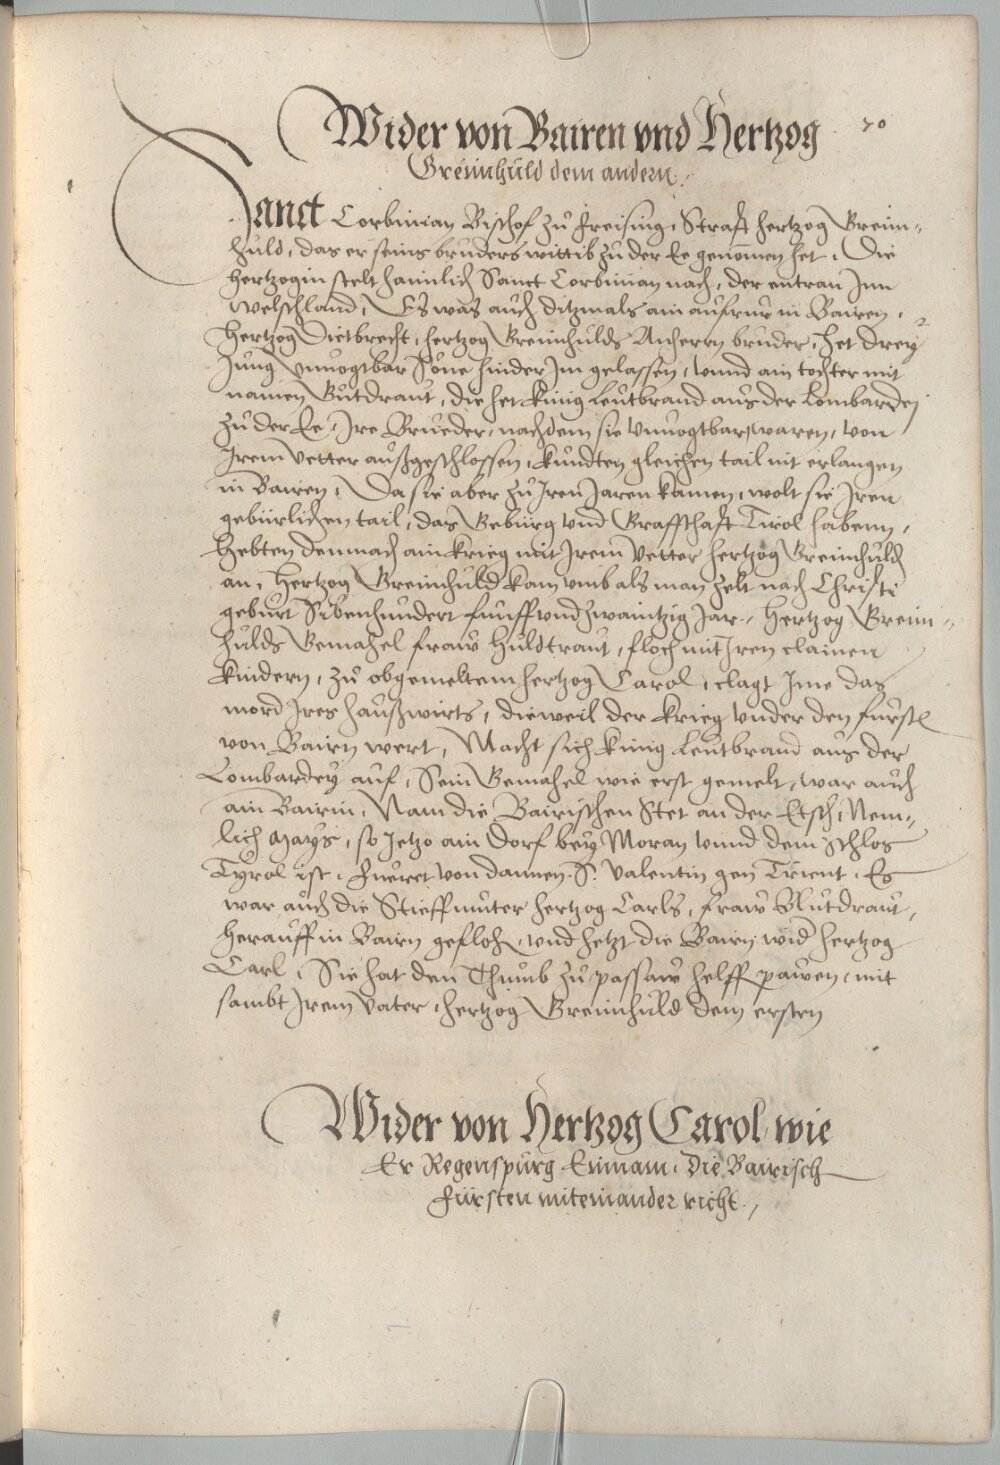 70
Wider von Bairen vnd Hertzog
Greimhuld dem andern.
Sanct Corbinian Bischof zu freising, Straft hertzog Greim-
huld, das er seins bruders wittib zu der Ee genomen het. Die
hertzogin stelt haimlich Sanct Corbinian nach, der entran Inn
welschland, Es was auch ditzmals ain aufrur in Bairen,
Hertzog Dietbrecht, hertzog Greimhulds Anherrn bruder, het drey
Jung vnuogtbar Söne hinder Im gelassen, vnnd ain tochter mit
namen Gutdraut, die het kunig Leutbrand aus der Lombardej
zu der Ee, Ire Brueder, nachdem sie vnuogtbar waren, von
Irem vetter außgeschlossen, kundten gleichen tail nit erlangen
in Bairen, Da sie aber zu Iren Jaren kamen, wolt sie Iren
gebürlichen tail, das Gebürg vnd Graffschaft Tirol habenn,
Hebten demnach ain krieg mit Irem vetter hertzog Greimhuld
an, Hertzog Greimhuld kam vmb als man zelt nach Christi
geburt Sibenhundert funff vnd zwaintzig Jar, Hertzog Greim-
hulds Gemahel fraw Huldtraut, floch mit Iren clainen
kindern, zu obgemeltem hertzog Carol, clagt Ime das
mord Ires haußwirts, dieweil der krieg vnder den furstn
von Bairn wert, Macht sich kunig Leutbrand aus der
Lombardey auf, Sein Gemahel wie erst gemelt, war auch
ain Bairin, Nam die Bairischen Stet an der Etsch, Nem-
lich Mays, so Jetzo ain dorf bey Moran vnnd dem schlos
Tyrol ist, fueret von dannen S. Valentin gen Trient, Es
war auch die Stieffmuter hertzog Carls, fraw Blutdraut,
herauff in Bairn geflohn, vnd hetzt die Bairn wid hertzog
Carl, Sie hat den Thumb zu passaw helffen pawen, mit
sambt Irem vater, hertzog Greimhuld dem ersten
Wider von Hertzog Carol, wie
Er Regenspurg Einnam, die Bairisch
fürsten miteinander richt.